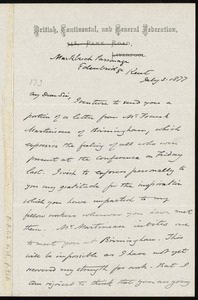 British, Continental, and General Federation,
Park Road,
Liverpool
Markbeech Parsonage
Edenbridge Kent
July 3. 1877
My dear Sir,
I venture to send you a
portion of a letter from Mr. Frank
Martineau of Birmingham, which
expresses the feeling of all who
were present at the conference on Friday
last. I wish to express personally to
you my gratitude for the information
which you have imparted to my
fellow workers wherever you have met
them. Mr. Martineau invites me
to meet you at Birmingham. This
will be impossible as I have not yet
recovered my strength for work. But I
am rejoiced to think that you are going